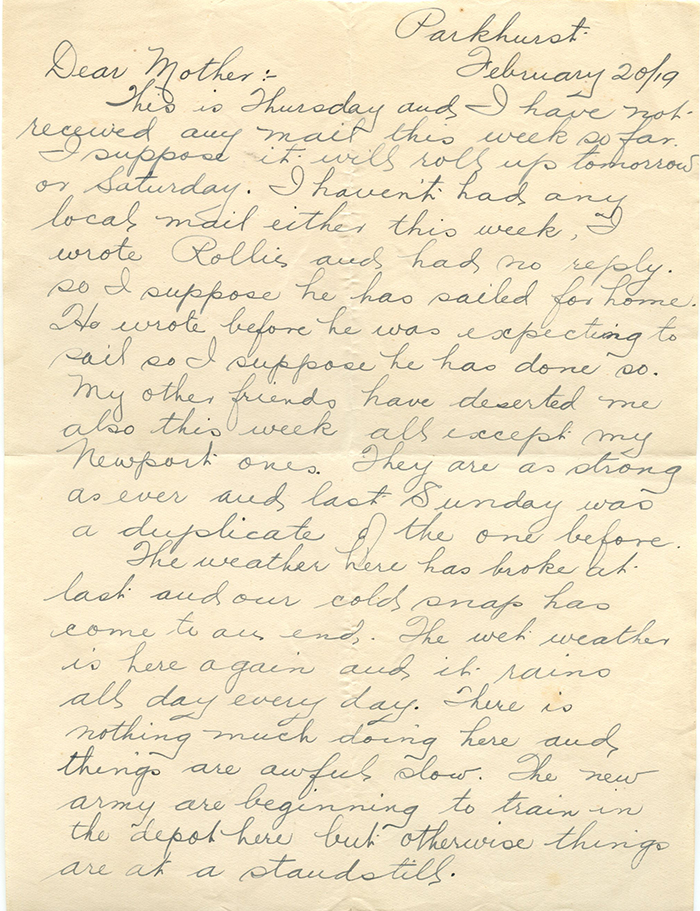 Parkhurst
February 20/19
Dear Mother:-
This is Thursday and I have not
received any mail this week so far.
I suppose it will roll up tomorrow
or Saturday. I haven't had any
local mail either this week, I
wrote Rollie and had no reply.
so I suppose he has sailed for home.
He wrote before he was expecting to
sail so I suppose he has done so.
My other friends have deserted me
also this week all except my
Newport ones. They are as strong
as ever and last Sunday was
a duplicate of the one before.
The weather here has broke at
last and our cold snap has
come to an end. The wet weather
is here again and it rains
all day every day. There is
nothing much doing here and
things are awful slow. The new
army are beginning to train in
the depot here but otherwise things
are at a standstill.